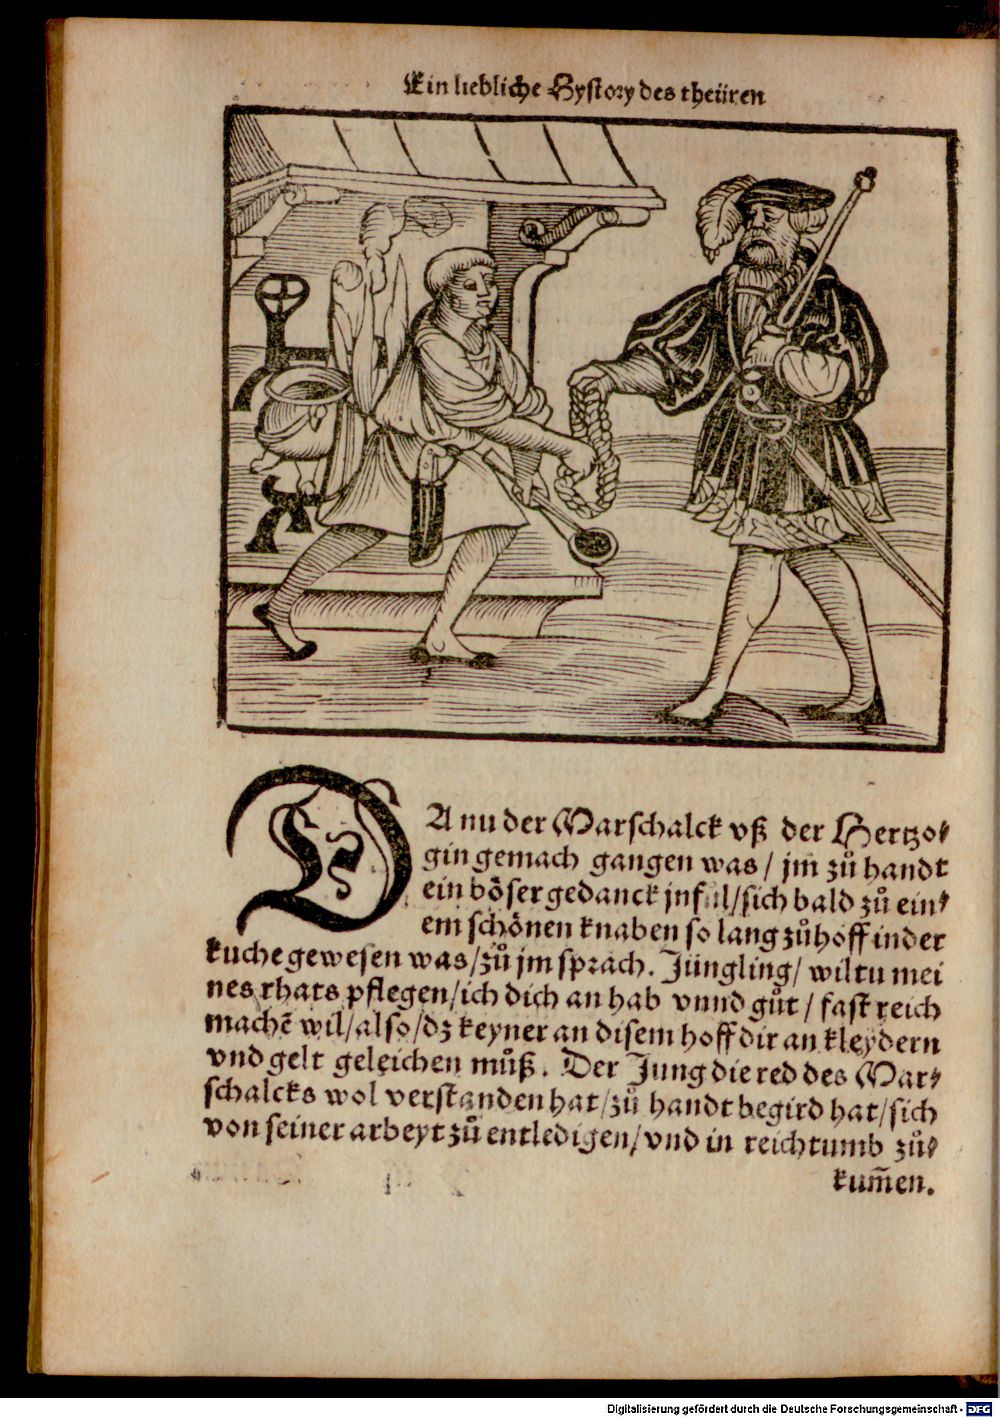 Ein liebliche Hystory des theüren
DA nu der Marschalck vß der Hertzo⸗
gin gemach gangen was/ jm̄ zů handt
ein bôser gedanck jnfiil/sich bald zů ein⸗
em schônen knaben so lang zůhoff in der
kuche gewesen was/zů jm sprach. Jüngling/ wiltu mei
nes rhats pflegen/ich dich an hab vnnd gůt/ fast reich
machē wil/also/dz keyner an disem hoff dir an kleydern
vnd gelt geleichen můß. Der Jung die red des Mar⸗
schalcks wol verstanden hat/zů handt begird hat/sich
von seiner arbeyt zů entledigen/vnd in reichtumb zů⸗
kum̄en.
Digitalisierung gefördert durch die Deutsche Forschungsgemeinschaft - DFG